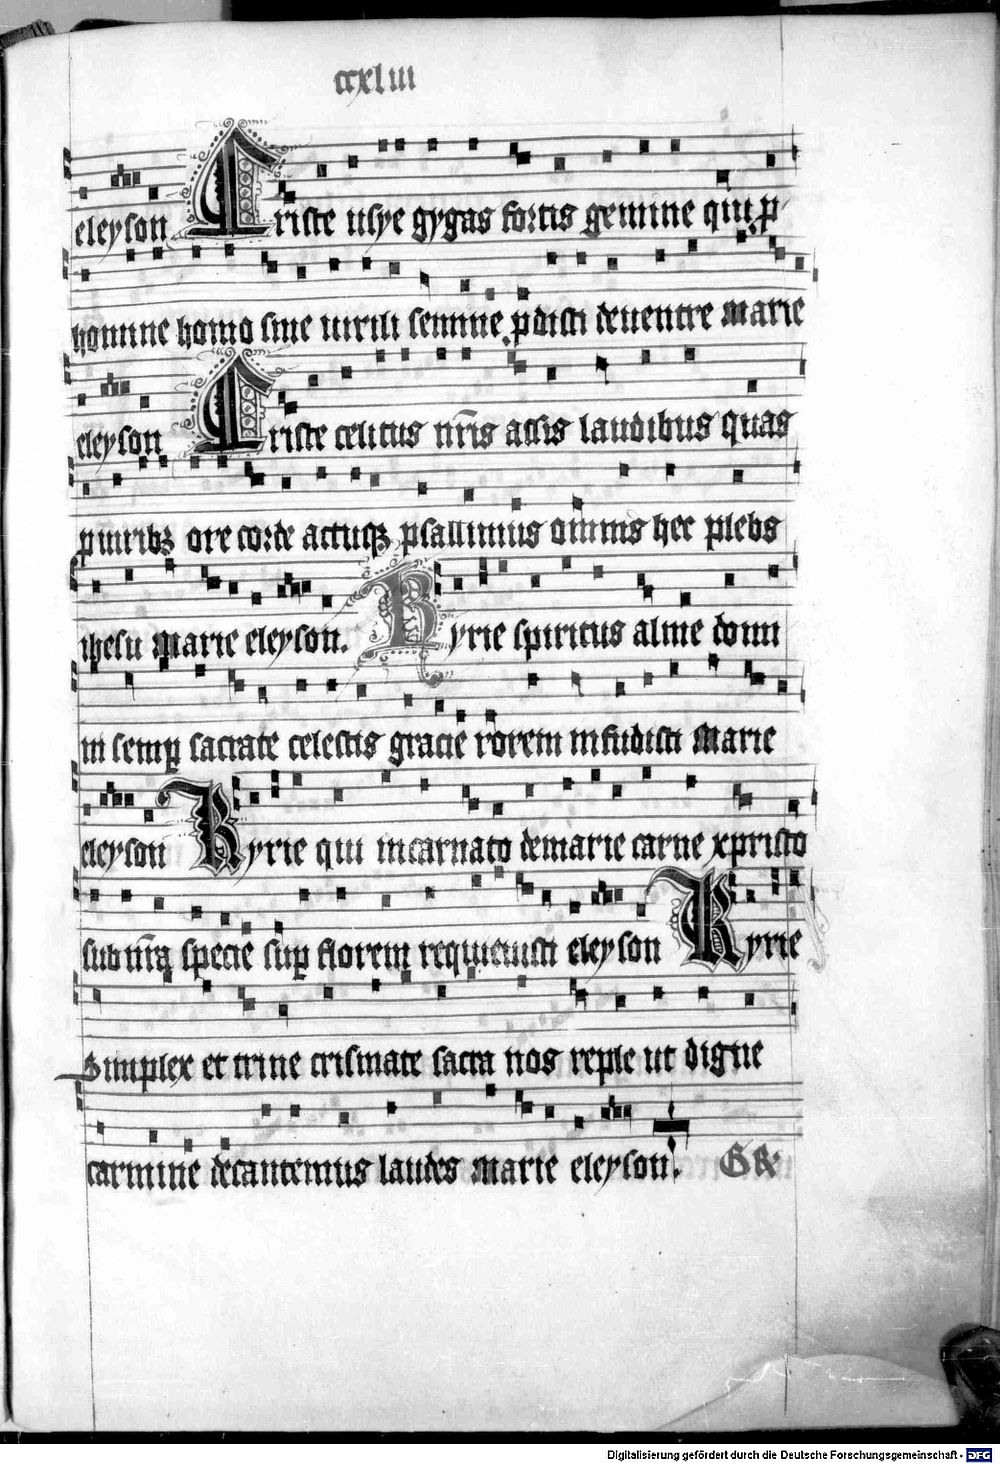 ccxliii
eleyson Criste usye gygas fortis gemine qui p
homine homo sine uirili semine pdisti deuentre marie
eleyson Criste celitus nr̄is assis laudibus quas
puiribꝫ ore corde actuqꝫ psallimus omnis hec plebs
ihesu marie eleyson. Kyrie spiritus alme doni
in semp sacrate celestis gracie rorem infudisti marie
eleyson Kyrie qui incarnato demarie carne xpristo
sub specie sup florem requieuisti eleyson Kyrie
Simplex et trine crismate sacra nos reple ut digne
carmine decantemus laudes marie eleyson.
Digitalisierung gefördert durch die Deutsche Forschungsgemeinschaft - DFG